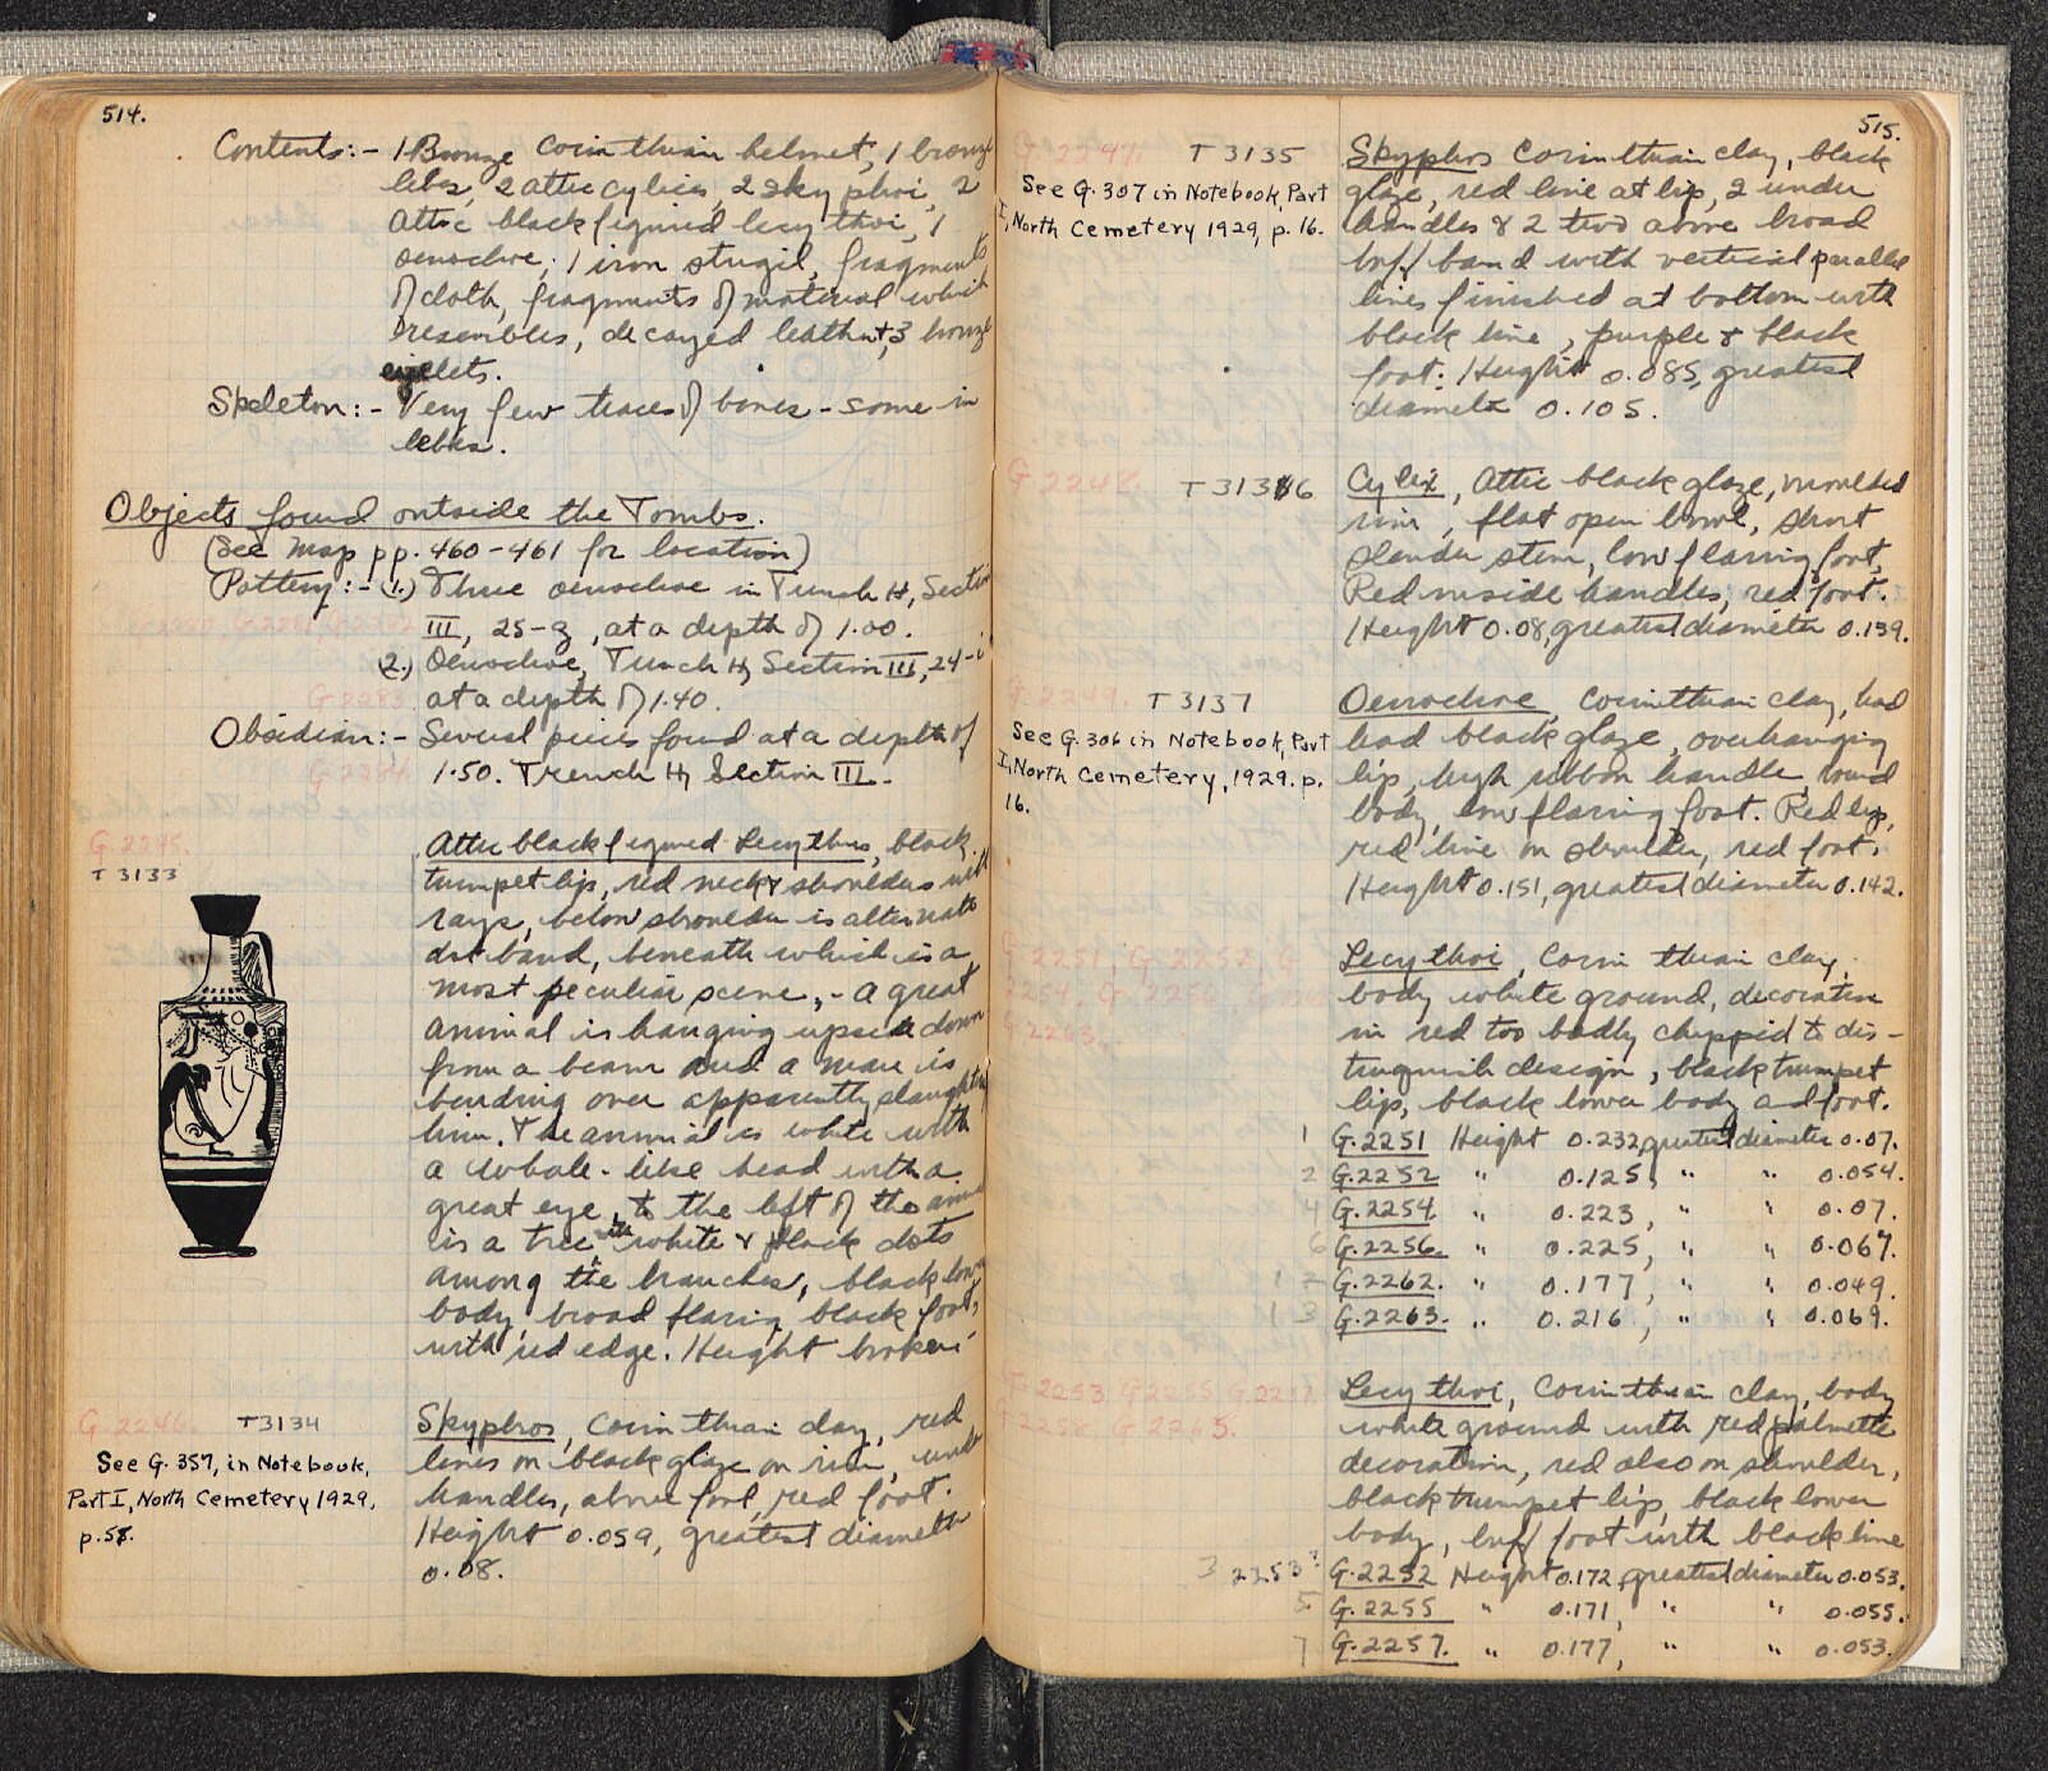 514.
Contents:- 1 Bronze Corinthian helmet, 1 bronze
lebes, 2 attic cylices, 2 skyphoi, 2
Attic black figured lecythoi, 1
oenochoe, 1 iron strigil, fragments
of cloth, fragments of material which
resembles, decayed leather, 3 bronze
Skeleton:- Very few traces of bones - some in
lebes.
Objects found outside the Tombs.
(See Map pp. 460-461 for location)
Pottery:- (1.) Three oenochoe in Trench H, Section
III, 25-g, at a depth of 1.00.
(2.) Oenochoe, Trench H, Section III, 24-i
G 2283 at a depth of 1.40.
Obsidian:- Several pieces found at a depth of
1.50. Trench H, Section III.
G. 2245.
T 3133
Attic black figured Lecythus, black
trumpet lip, red neck & shoulders with
rays, below shoulder is alternate
dot band, beneath which is a
most peculiar scene, - a great
animal is hanging upside down
from a beam and a man is
bending over apparently slaughtering
him. The animal is white with
a whale-like head with a
great eye, to the left of the animal
is a tree with white & black dots
among the branches, black lower
body, broad flaring black foot,
with red edge. Height broken
G. 2246. T3134
See G. 357, in Notebook,
Part I, North Cemetery 1929,
p. 58.
Skyphos, Corinthian clay, red
lines on black glaze on rim, under
handles, above foot, red foot.
Height 0.059, greatest diameter
0.08.
515.
G 2247. T 3135
See G. 307 in Notebook, Part
I, North Cemetery 1929, p. 16.
Skyphos Corinthian clay, black
glaze, red line at lip, 2 under
handles & 2 two above broad
buff band with vertical parallel
lines finished at bottom with
black line, purple & black
foot. Height 0.085, greatest
diameter 0.105.
G 2248. T 3136
Cylix, Attic black glaze, moulded
rim, flat open bowl, short
slender stem, low flaring foot,
Red inside handles, red foot.
Height 0.08, greatest diameter 0.139.
G. 2249. T 3137
See G. 306 in Notebook, Part
I, North Cemetery, 1929. p.
16.
Oenochoe, Corinthian clay, had
had black glaze, overhanging
lip, high ribbon handle, round
body, low flaring foot. Red lip,
red line on shoulder, red foot.
Height 0.151, greatest diameter 0.142.
G 2251, G 2252, G
2254, G. 2256
G 2263.
Lecythoi, Corinthian clay,
body white ground, decoration
in red too badly chipped to dis-
tinguish design, black trumpet
lip, black lower body and foot.
1 G. 2251 Height 0.232, greatest diameter 0.07.
2 G. 2252 " 0.125, " " 0.054.
4 G. 2254. " 0.223, " " 0.07.
6 G. 2256. " 0.225, " " 0.067.
12 G. 2262. " 0.177, " " 0.049.
13 G. 2263. " 0.216, " " 0.069.
G. 2253, G 2255, G 2257
G 2258, G 2265.
Lecythoi, Corinthian clay, body
white ground with red palmette
decoration, red also on shoulder,
black trumpet lip, black lower
body, buff foot with black line
3 2253? G. 2252 Height 0.172, greatest diameter 0.053.
5 G. 2255 " 0.171, " " 0.055.
7 G. 2257. " 0.177, " " 0.053.